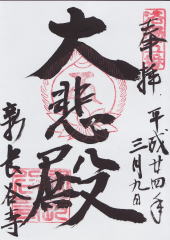 奉拝
平成廿四年
三月九日
大悲殿
新長谷寺